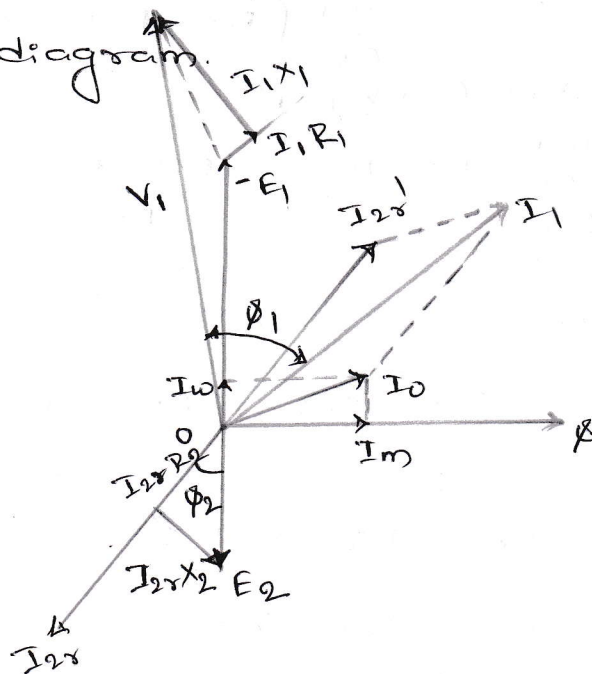 diagram.
I₁X₁
I₁R₁
-E₁
V₁
I₂r'
I₁
ϕ₁
Iw
I₀
O
Im
ϕ
I₂rR₂
ϕ₂
I₂rX₂
E₂
I₂r